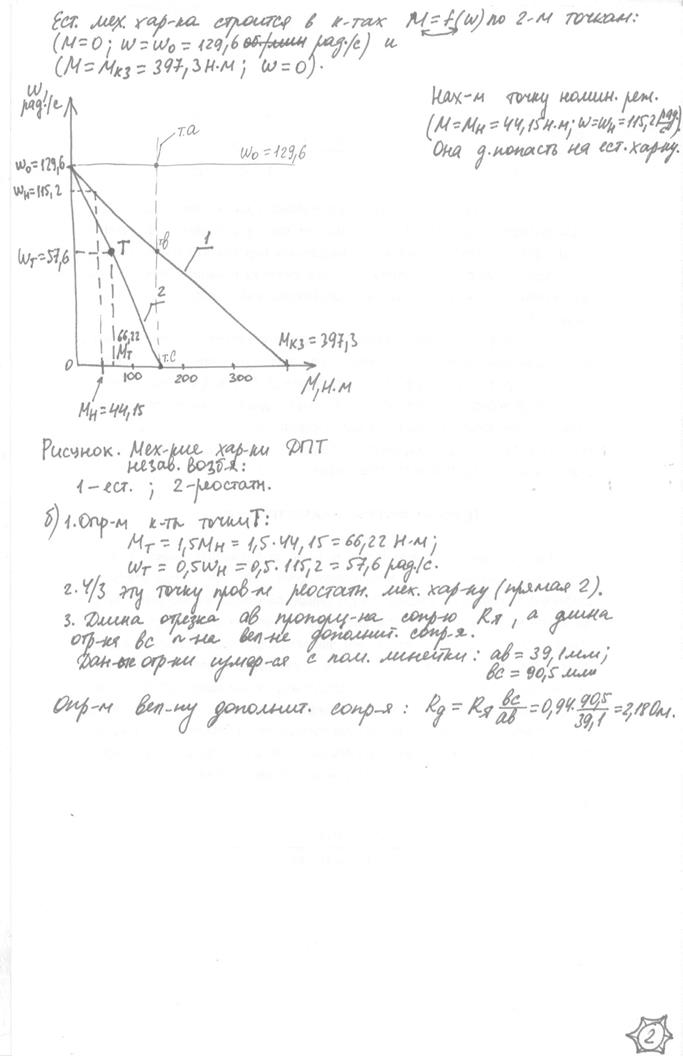 Ест. мех. хар-ка строится в к-тах M=f(w) по 2-м точкам:
(M=0; w=w₀=129,6 об/мин рад/с) и
(M=Mкз=397,3 Н·м; w=0).
Нах-м точку номин. реж.
(M=Mн=44,15 Н·м; w=wн=115,2 рад/с).
Она д. попасть на ест. хар-ку.
w,
рад/с
т.a
w₀=129,6
w₀=129,6
wн=115,2
т.в
1
wт=57,6
T
2
66,22
Mт
т.с
Mкз=397,3
0
100
200
300
M, Н·м
Mн=44,15
Рисунок. Мех-кие хар-ки ДПТ
незав. возб-я:
1-ест. ; 2-реостатн.
б) 1. Опр-м к-ты точки T:
Mт = 1,5Mн = 1,5·44,15 = 66,22 Н·м;
wт = 0,5wн = 0,5·115,2 = 57,6 рад/с.
2. Ч/з эту точку пров-м реостатн. мех. хар-ку (прямая 2).
3. Длина отрезка ав пропорц-на сопр-ю Rя, а длина
отр-ка вс п-на вел-не дополнит. сопр-я.
Дан-ые отр-ки измер-ся с пом. линейки: ав = 39,1 мм;
вс = 90,5 мм
Опр-м вел-ну дополнит. сопр-я: Rд = Rя вс/ав = 0,94·90,5/39,1 = 2,18 Ом.
2